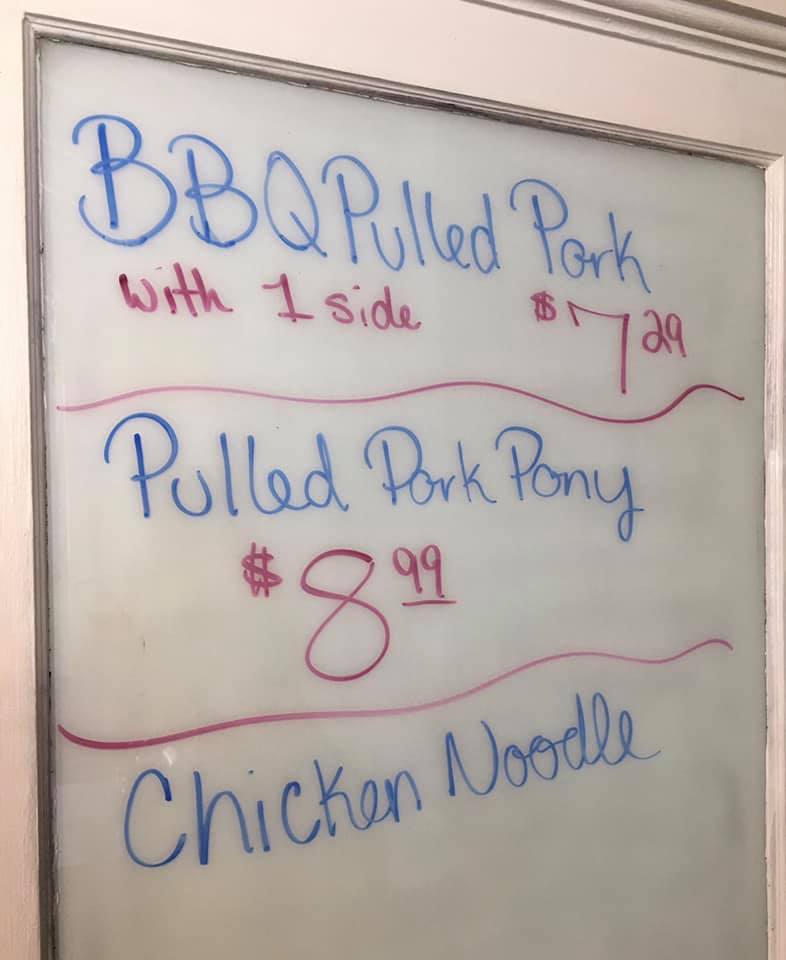 BBQ Pulled Pork
with 1 side $7 29
Pulled Pork Pony
$8 99
Chicken Noodle